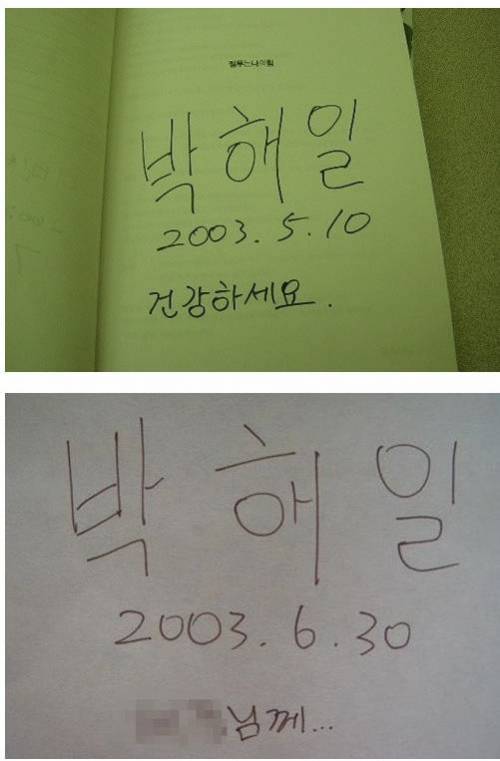 질투는나의힘
박해일
2003.5.10
건강하세요.
박해일
2003.6.30
님께...